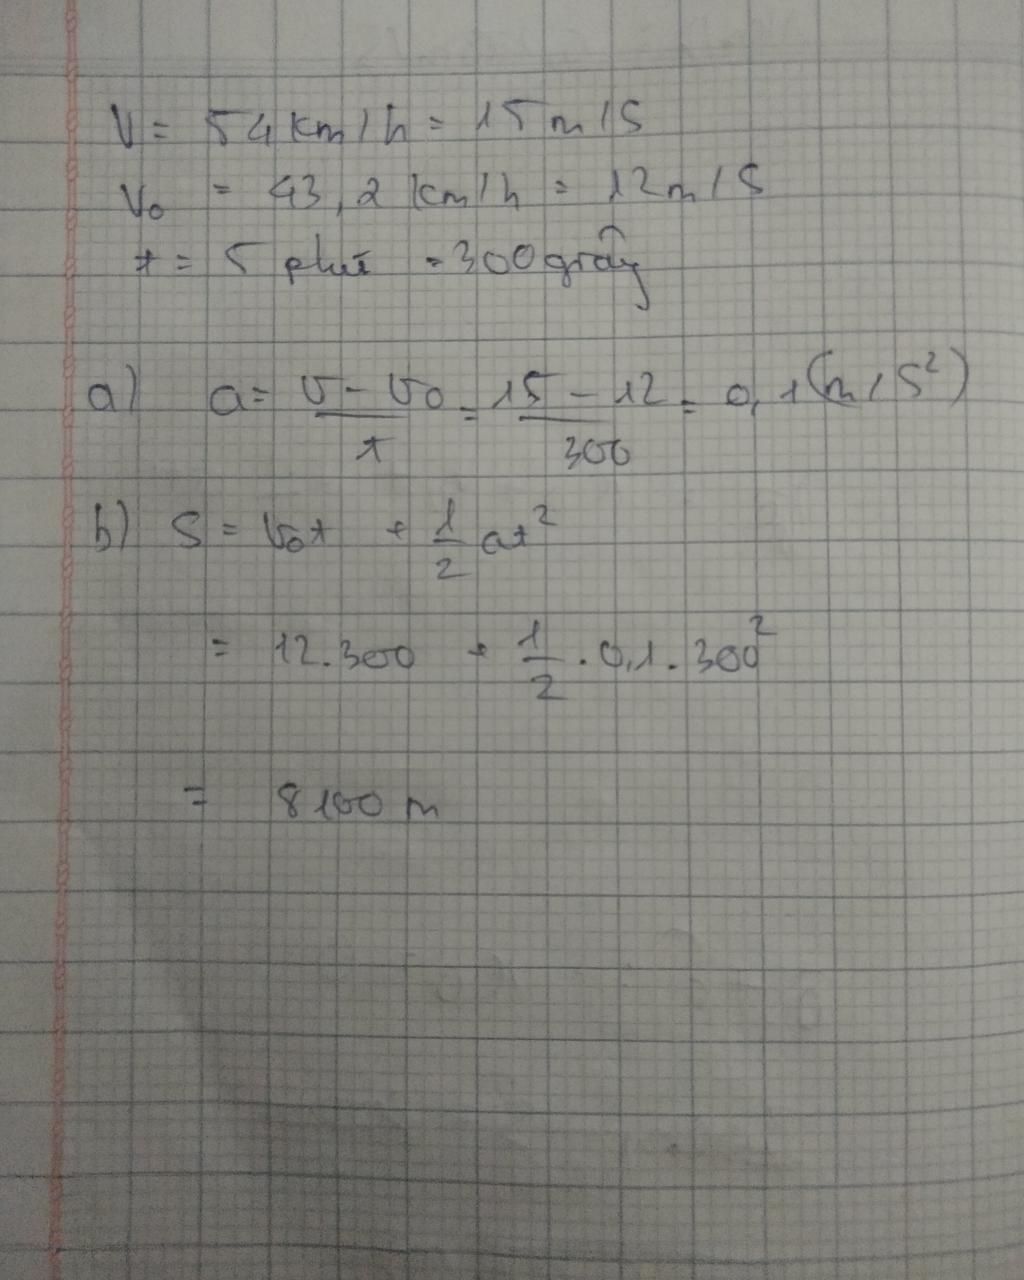 V = 54 km/h = 15 m/s
V₀ = 43,2 km/h = 12 m/s
t = 5 phút = 300 giây
a) a = (v - v₀)/t = (15 - 12)/300 = 0,1 (m/s²)
b) S = v₀t + 1/2 at²
= 12.300 + 1/2 . 0,1 . 300²
= 8100 m